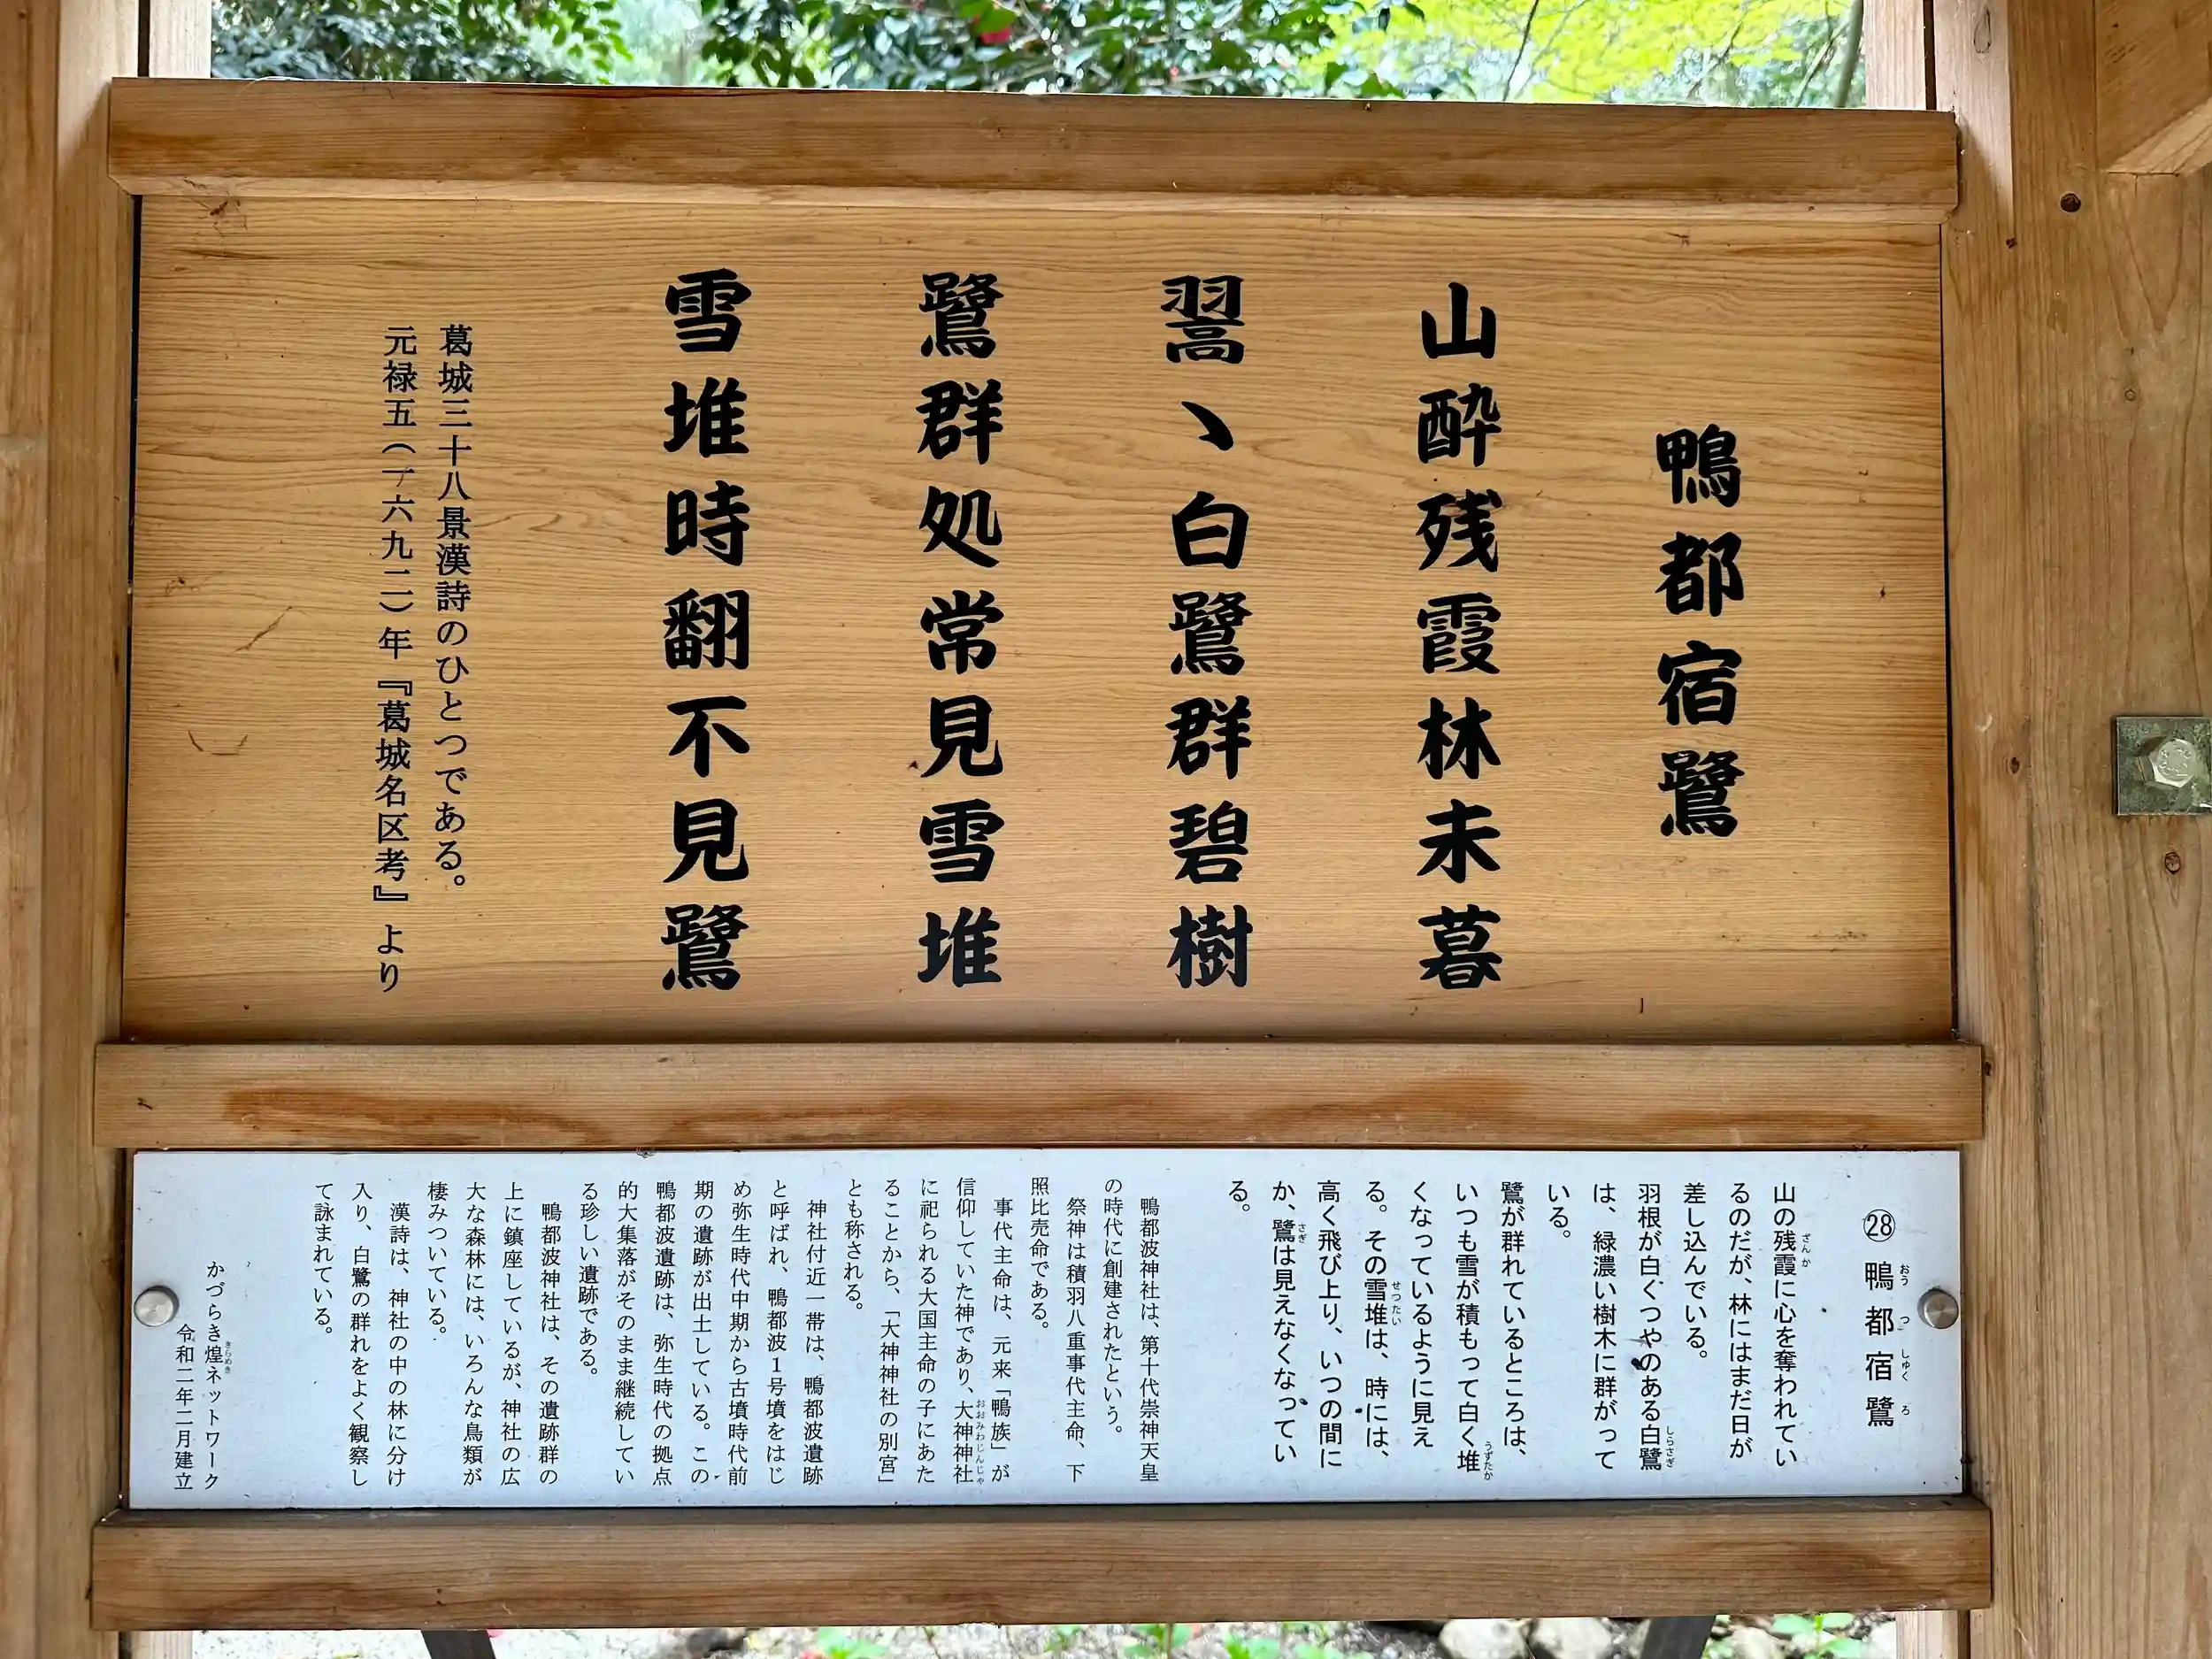 鴨都宿鷺
山酔残霞林未暮
翯丶白鷺群碧樹
鷺群処常見雪堆
雪堆時翻不見鷺
葛城三十八景漢詩のひとつである。
元禄五(一六九二)年『葛城名区考』より
㉘ 鴨都宿鷺
おう つ しゅく ろ
山の残霞に心を奪われてい
ざんか
るのだが、林にはまだ日が
差し込んでいる。
羽根が白くつやのある白鷺
しらさぎ
は、緑濃い樹木に群がって
いる。
鷺が群れているところは、
いつも雪が積もって白く堆
うずたか
くなっているように見え
る。その雪堆は、時には、
せつたい
高く飛び上り、いつの間に
か、鷺は見えなくなってい
さぎ
る。
鴨都波神社は、第十代崇神天皇
の時代に創建されたという。
祭神は積羽八重事代主命、下
照比売命である。
事代主命は、元来「鴨族」が
信仰していた神であり、大神神社
おおみわじんじゃ
に祀られる大国主命の子にあた
ることから、「大神神社の別宮」
とも称される。
神社付近一帯は、鴨都波遺跡
と呼ばれ、鴨都波1号墳をはじ
め弥生時代中期から古墳時代前
期の遺跡が出土している。この
鴨都波遺跡は、弥生時代の拠点
的大集落がそのまま継続してい
る珍しい遺跡である。
鴨都波神社は、その遺跡群の
上に鎮座しているが、神社の広
大な森林には、いろんな鳥類が
棲みついている。
漢詩は、神社の中の林に分け
入り、白鷺の群れをよく観察し
て詠まれている。
かづらき煌ネットワーク
きらめき
令和二年二月建立